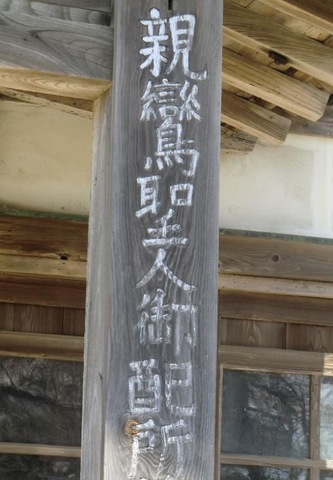 親鸞聖人御配所